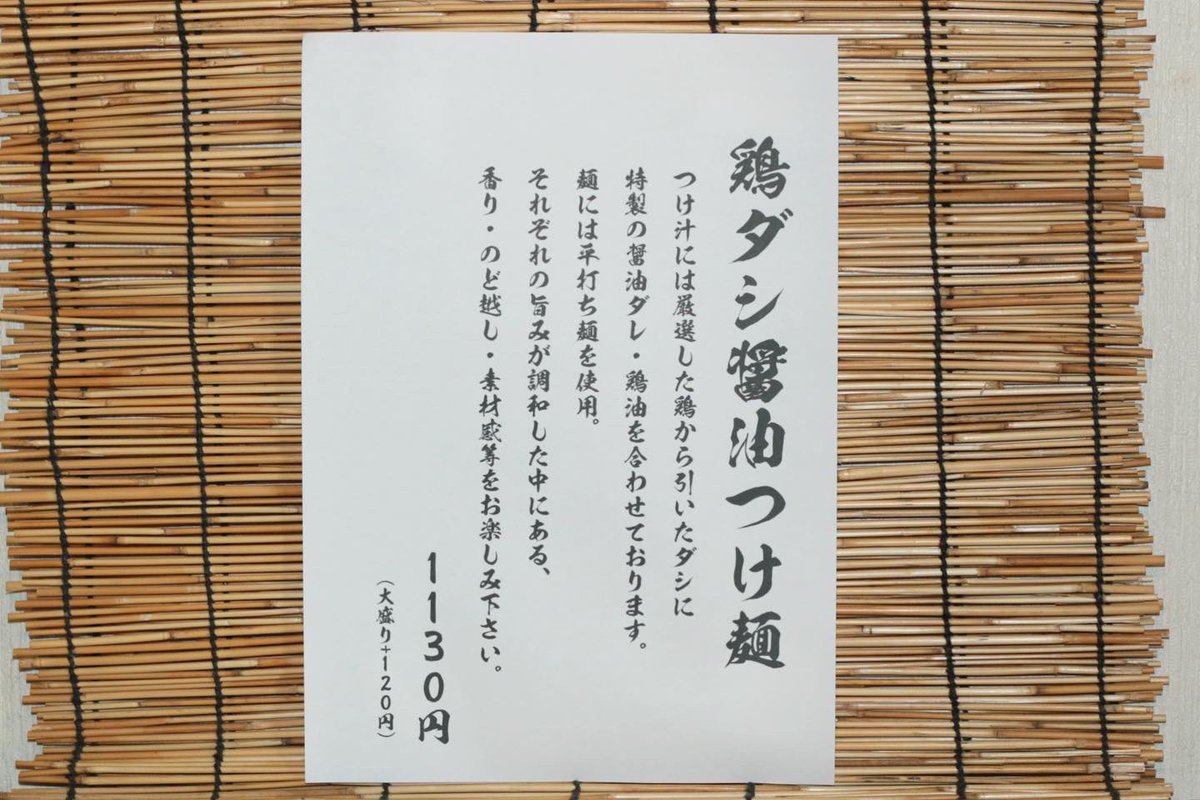 鶏ダシ醤油つけ麺
つけ汁には厳選した鶏から引いたダシに
特製の醤油ダレ・鶏油を合わせております。
麺には平打ち麺を使用。
それぞれの旨みが調和した中にある、
香り・のど越し・素材感等をお楽しみ下さい。
1130円
(大盛り+120円)